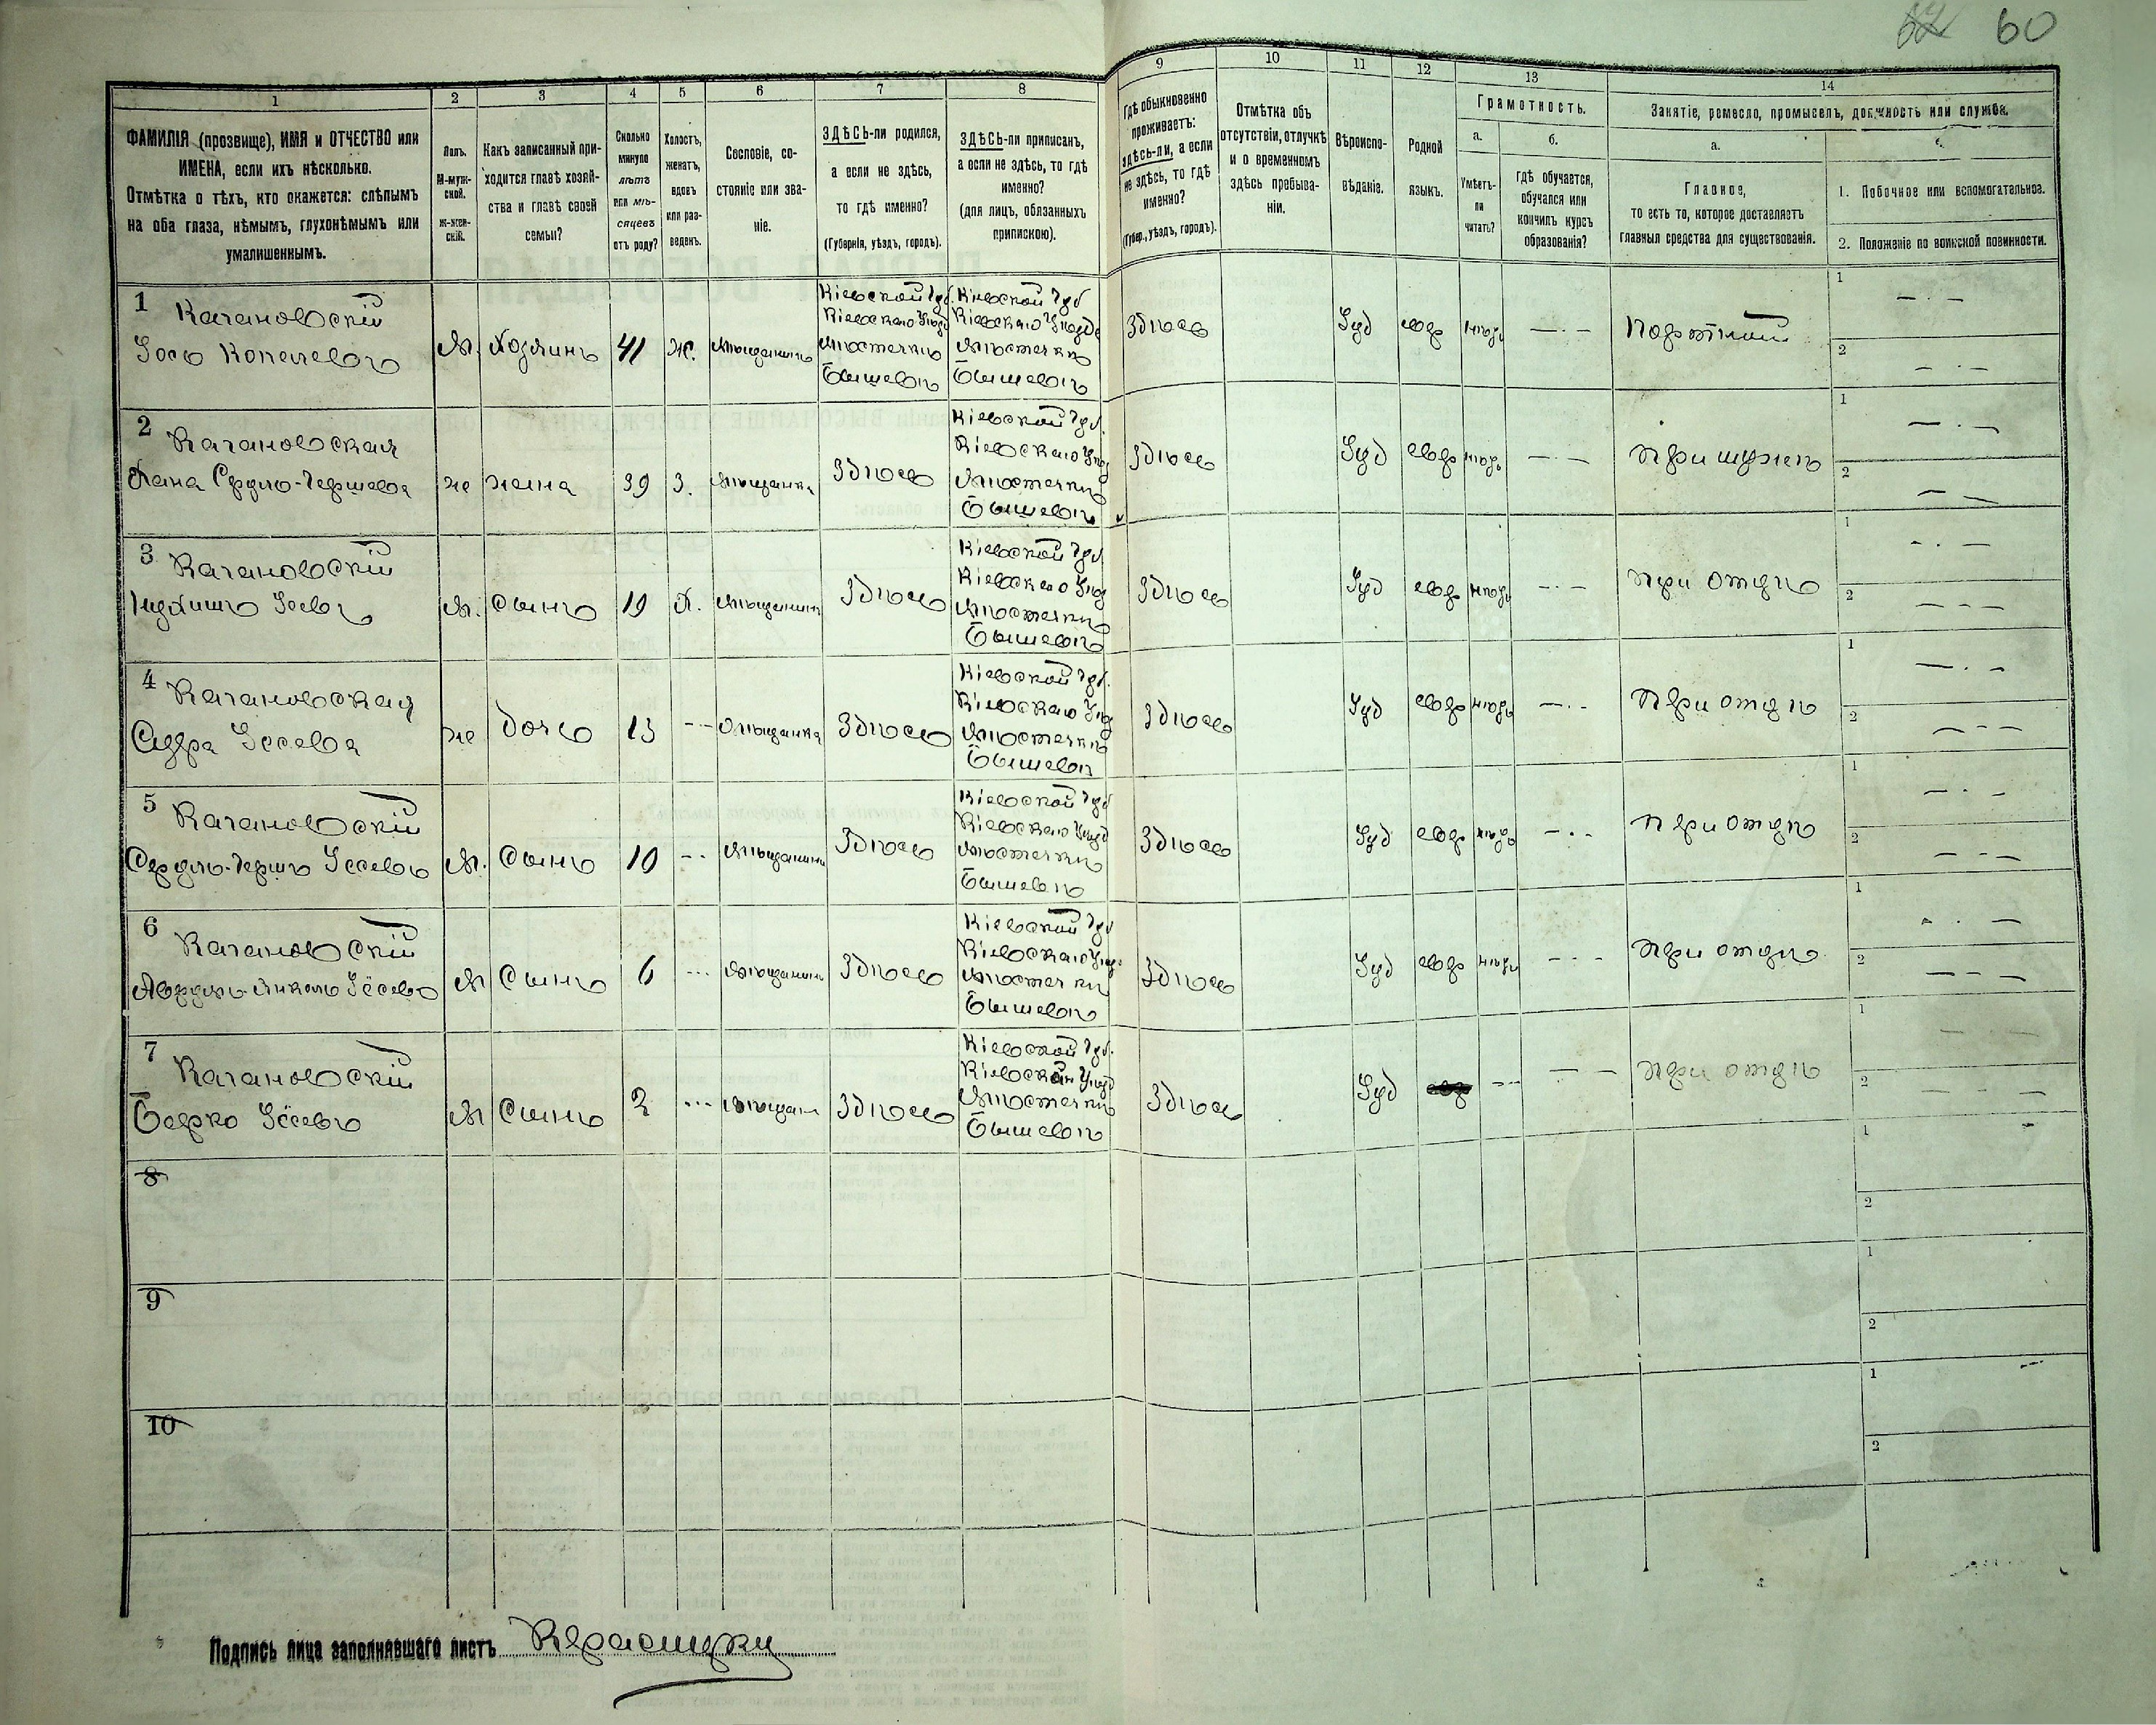 60
1 2 3 4 5 6 7 8 9 10 11 12 13 14
ФАМИЛІЯ (прозвище), ИМЯ и ОТЧЕСТВО или
ИМЕНА, если ихъ нѣсколько.
Отмѣтка о тѣхъ, кто окажется: слѣпымъ
на оба глаза, нѣмымъ, глухонѣмымъ или
умалишеннымъ.
Полъ.
М-муж-
ской.
Ж-жен-
скій.
Какъ записанный при-
ходится главѣ хозяй-
ства и главѣ своей
семьи?
Сколько
минуло
лѣтъ
или мѣ-
сяцевъ
отъ роду?
Холостъ,
женатъ,
вдовъ
или раз-
веденъ.
Сословіе, со-
стояніе или зва-
ніе.
ЗДѢСЬ-ли родился,
а если не здѣсь,
то гдѣ именно?
(Губернія, уѣздъ, городъ).
ЗДѢСЬ-ли приписанъ,
а если не здѣсь, то гдѣ
именно?
(для лицъ, обязанныхъ
припискою).
Гдѣ обыкновенно
проживаетъ:
здѣсь-ли, а если
не здѣсь, то гдѣ
именно?
(Губер., уѣздъ, городъ).
Отмѣтка объ
отсутствіи, отлучкѣ
и о временномъ
здѣсь пребыва-
ніи.
Вѣроиспо-
вѣданіе.
Родной
языкъ.
Грамотность.
а.
Умѣетъ-
ли
читать?
б.
гдѣ обучается,
обучался или
кончилъ курсъ
образованія?
Занятіе, ремесло, промыселъ, должность или служба.
а.
Главное,
то есть то, которое доставляетъ
главныя средства для существованія.
1. Побочное или вспомогательное.
2. Положеніе по воинской повинности.
1
Качановскій
Іось Копелевъ
М. Хозяинъ 41 Ж. Мѣщанинъ
Кіевской Губ.
Кіевскаго Уѣзда
Мѣстечкѣ
Бышевѣ
Кіевской Губ
Кіевскаго Уѣзда
Мѣстечкѣ
Бышевѣ
Здѣсь Іуд евр Портной
2
Качановская
Хана Сруль-Гершева
же жена 39 З. Мѣщанка Здѣсь
Кіевской Губ.
Кіевскаго Уѣз
Мѣстечкѣ
Бышевѣ
Здѣсь Іуд евр При мужѣ
3
Качановскій
М. Сынъ 19 Х. Мѣщанинъ Здѣсь
Кіевской Губ.
Кіевскаго Уѣз
Мѣстечкѣ
Бышевѣ
Здѣсь Іуд евр При отцѣ
4
Качановская
Сура Іосева
же Дочь 13 Мѣщанка Здѣсь
Кіевской Губ.
Кіевскаго Уѣз
Мѣстечкѣ
Бышевѣ
Здѣсь Іуд евр При отцѣ
5
Качановскій
Сруль-Гершъ Іосевъ
М. Сынъ 10 Мѣщанинъ Здѣсь
Кіевской Губ
Кіевскаго Уѣзд
Мѣстечкѣ
Бышевѣ
Здѣсь Іуд евр При отцѣ
6
Качановскій
М Сынъ 6 Мѣщанинъ Здѣсь
Кіевской Губ
Кіевскаго Уѣз
Мѣстечкѣ
Бышевѣ
Здѣсь Іуд евр При отцѣ
7
Качановскій
Берко Іосевъ
М Сынъ 2 Мѣщан Здѣсь
Кіевской Губ.
Уѣзд
Мѣстечкѣ
Бышевѣ
Здѣсь Іуд При отцѣ
8
9
10
Подпись лица заполнявшаго листъ